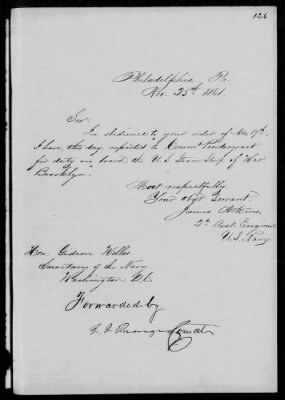 126
Philadelphia Pa.
Nov. 25th 1861.
Sir.
In obedience to your order of Nov. 19th
I have, this day, reported to Comm't Pendergrast
for duty on board the U.S. Steam Slop of War
Brooklyn.
Most respectfully
Your Obt Servant.
James Atkins,
2d Asst. Engineer
U.S. Navy
Hon. Gideon Welles
Secretary of the Navy
Washington D.C.
Forwarded by